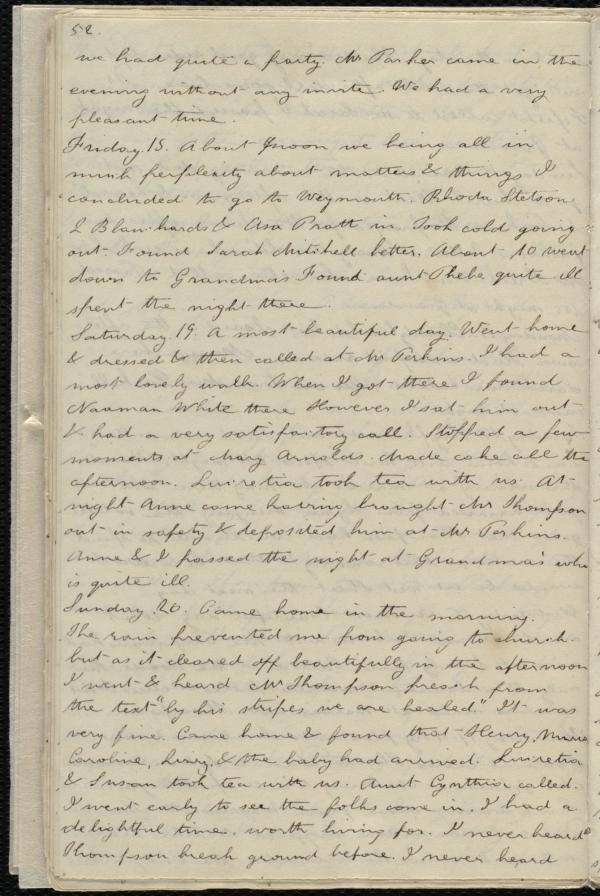 52.
we had quite a party. Mr Parker came in the
evening without any invite. We had a very
pleasant time.
Friday 18. About noon we being all in
much perplexity about matters & things I
concluded to go to Weymouth. Rhoda Stetson
2 Blanchards & Asa Pratt in. Took cold going
out. Found Sarah Mitchell better. About 10 went
down to Grandma's Found aunt Phebe quite ill
spent the night there.
Saturday 19. A most beautiful day. Went home
& dressed & then called at Mr Perkins. I had a
most lovely walk. When I got there I found
Naaman White there However I sat him out
& had a very satisfactory call. Stopped a few
moments at Mary Arnolds. Made cake all the
afternoon. Lucretia took tea with us. At
night Anne came having brought Mr Thompson
out in safety & deposited him at Mr Perkins.
Anne & I passed the night at Grandma's who
is quite ill.
Sunday 20. Came home in the morning.
The rain prevented me from going to church.
but as it cleared off beautifully in the afternoon
I went & heard Mr Thompson preach from
the text "by his stripes we are healed." It was
very fine. Came home & found that Henry, Maria
Caroline, Lizzy, & the baby had arrived. Lucretia
& Susan took tea with us. Aunt Cynthia called.
I went early to see the folks come in. I had a
delightful time, worth living for. I never heard
Thompson break ground before. I never heard